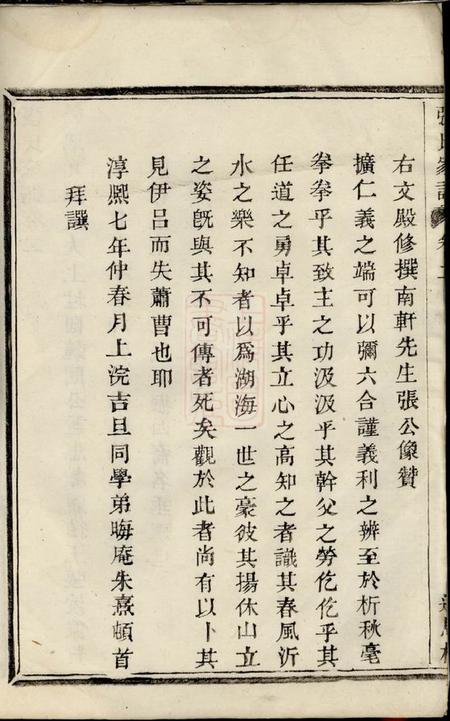 張氏家譜 卷二
右文殿修撰南軒先生張公像贊
擴仁義之端可以彌六合謹義利之辨至於析秋毫
拳拳乎其致主之功汲汲乎其幹父之勞仡仡乎其
任道之勇卓卓乎其立心之高知之者識其春風沂
水之樂不知者以爲湖海一世之豪彼其揚休山立
之姿旣與其不可傳者死矣觀於此者尚有以卜其
見伊呂而失蕭曹也耶
淳熙七年仲春月上浣吉旦同學弟晦庵朱熹頓首
拜譔